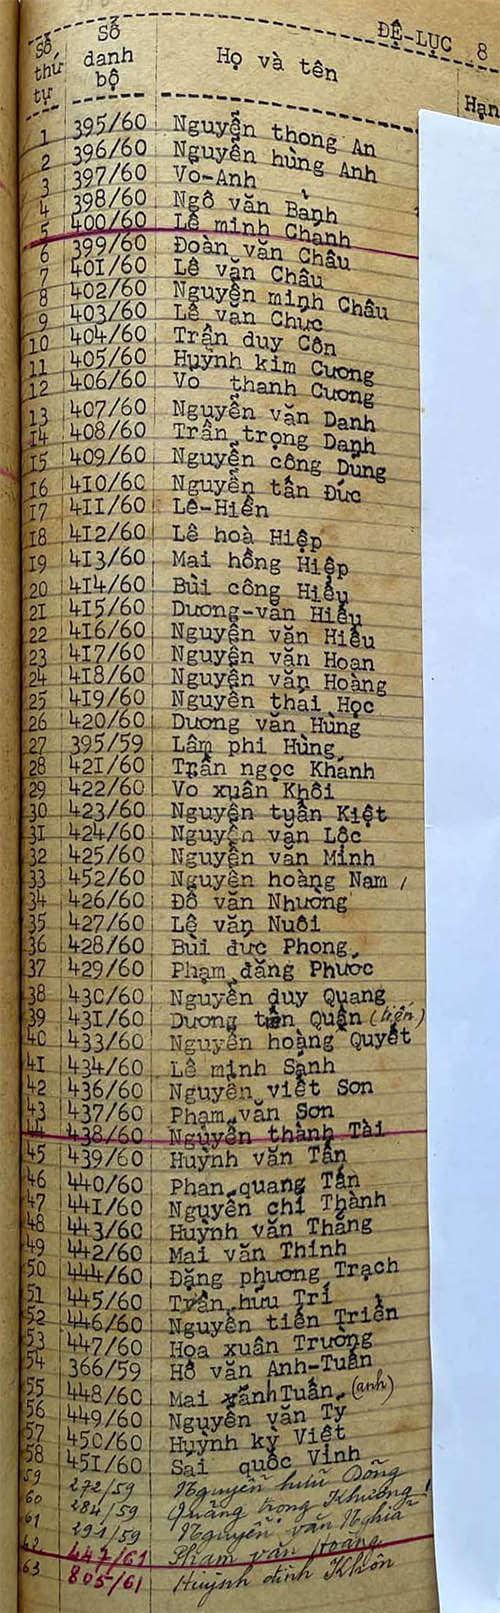 ĐỆ-LỤC 8
Số thứ tự Số danh bộ Họ và tên Hạn
1 395/60 Nguyễn thong An
2 396/60 Nguyễn hùng Anh
3 397/60 Vo-Anh
4 398/60 Ngô văn Bảnh
5 400/60 Lê minh Chánh
6 399/60 Đoàn văn Châu
7 401/60 Lê văn Châu
8 402/60 Nguyễn minh Châu
9 403/60 Lê văn Chức
10 404/60 Trần duy Côn
11 405/60 Huỳnh kim Cương
12 406/60 Vo thanh Cương
13 407/60 Nguyễn văn Danh
14 408/60 Trần trọng Danh
15 409/60 Nguyễn công Dũng
16 410/60 Nguyễn tấn Đức
17 411/60 Lê-Hiền
18 412/60 Lê hoà Hiệp
19 413/60 Mai hồng Hiệp
20 414/60 Bùi công Hiếu
21 415/60 Dương-văn Hiếu
22 416/60 Nguyễn văn Hiếu
23 417/60 Nguyễn văn Hoan
24 418/60 Nguyễn văn Hoàng
25 419/60 Nguyễn thái Học
26 420/60 Dương văn Hùng
27 395/59 Lâm phi Hùng
28 421/60 Trần ngọc Khánh
29 422/60 Vo xuân Khôi
30 423/60 Nguyễn tuấn Kiệt
31 424/60 Nguyễn văn Lộc
32 425/60 Nguyễn văn Minh
33 452/60 Nguyễn hoàng Nam
34 426/60 Đỗ văn Nhường
35 427/60 Lê văn Nuôi
36 428/60 Bùi đức Phong
37 429/60 Phạm đăng Phước
38 430/60 Nguyễn duy Quang
39 431/60 Dương tiến Quân (tiến)
40 433/60 Nguyễn hoàng Quyết
41 434/60 Lê minh Sảnh
42 436/60 Nguyễn viết Sơn
43 437/60 Phạm văn Sơn
44 438/60 Nguyễn thành Tài
45 439/60 Huỳnh văn Tấn
46 440/60 Phan quang Tấn
47 441/60 Nguyễn chí Thành
48 443/60 Huỳnh văn Thắng
49 442/60 Mai văn Thinh
50 444/60 Đặng phương Trạch
51 445/60 Trần hữu Trí
52 446/60 Nguyễn tiến Triển
53 447/60 Hoa xuân Trường
54 366/59 Hồ văn Anh-Tuấn
55 448/60 Mai Tuấn (anh)
56 449/60 Nguyễn văn Tý
57 450/60 Huỳnh kỳ Việt
58 451/60 Sái quốc Vinh
59 272/59 Nguyễn hữu Đồng
60 284/59 Quảng trọng Khương
61 291/59 Nguyễn văn Nghĩa
62 447/61 Phạm văn Hoàng
63 805/61 Huỳnh đình Khôn